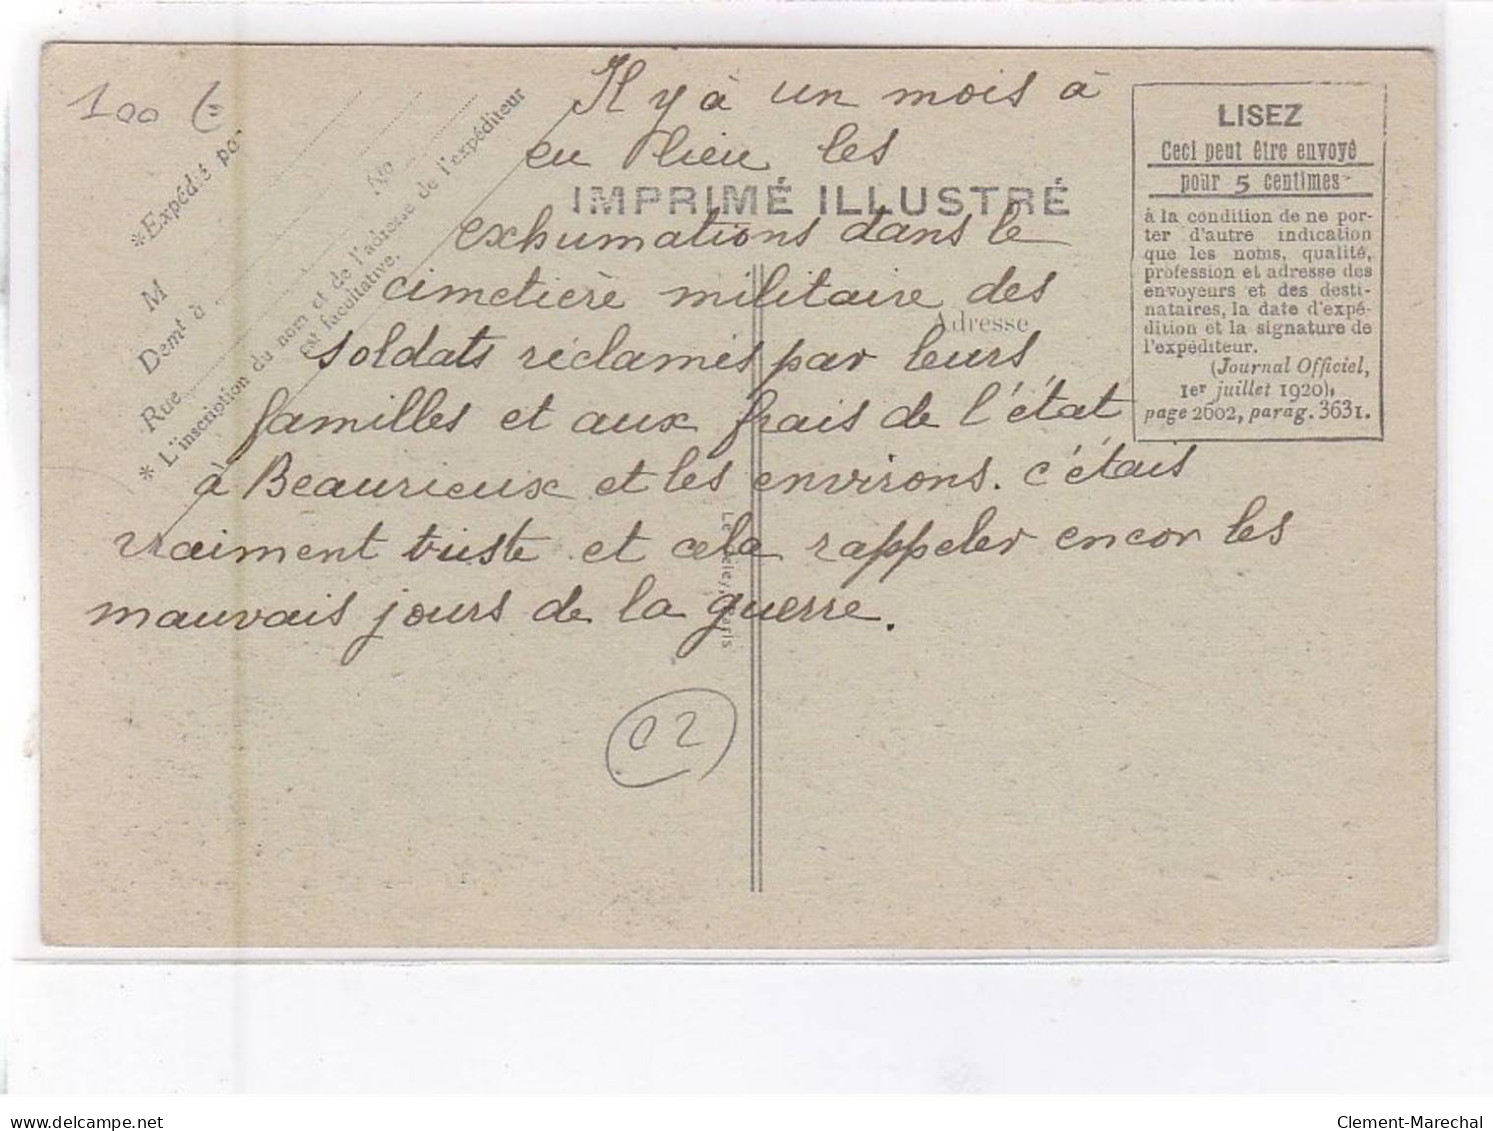 100 €
*Expédié par
M
No
Demt à
Rue
* L'inscription du nom et de l'adresse de l'expéditeur
est facultative.
Il y à un mois à
eu lieu les
IMPRIMÉ ILLUSTRÉ
exhumations dans le
cimetière militaire des
Adresse
soldats réclamés par leurs
familles et aux frais de l'état
à Beaurieux et les environs. c'étais
vraiment triste et cela rappeler encor les
mauvais jours de la guerre.
02
LISEZ
Ceci peut être envoyé
pour 5 centimes
à la condition de ne por-
ter d'autre indication
que les noms, qualité,
profession et adresse des
envoyeurs et des desti-
nataires, la date d'expé-
dition et la signature de
l'expéditeur.
(Journal Officiel,
1er juillet 1920),
page 2602, parag. 3631.
Paris
delcampe.net
Clement-Marechal